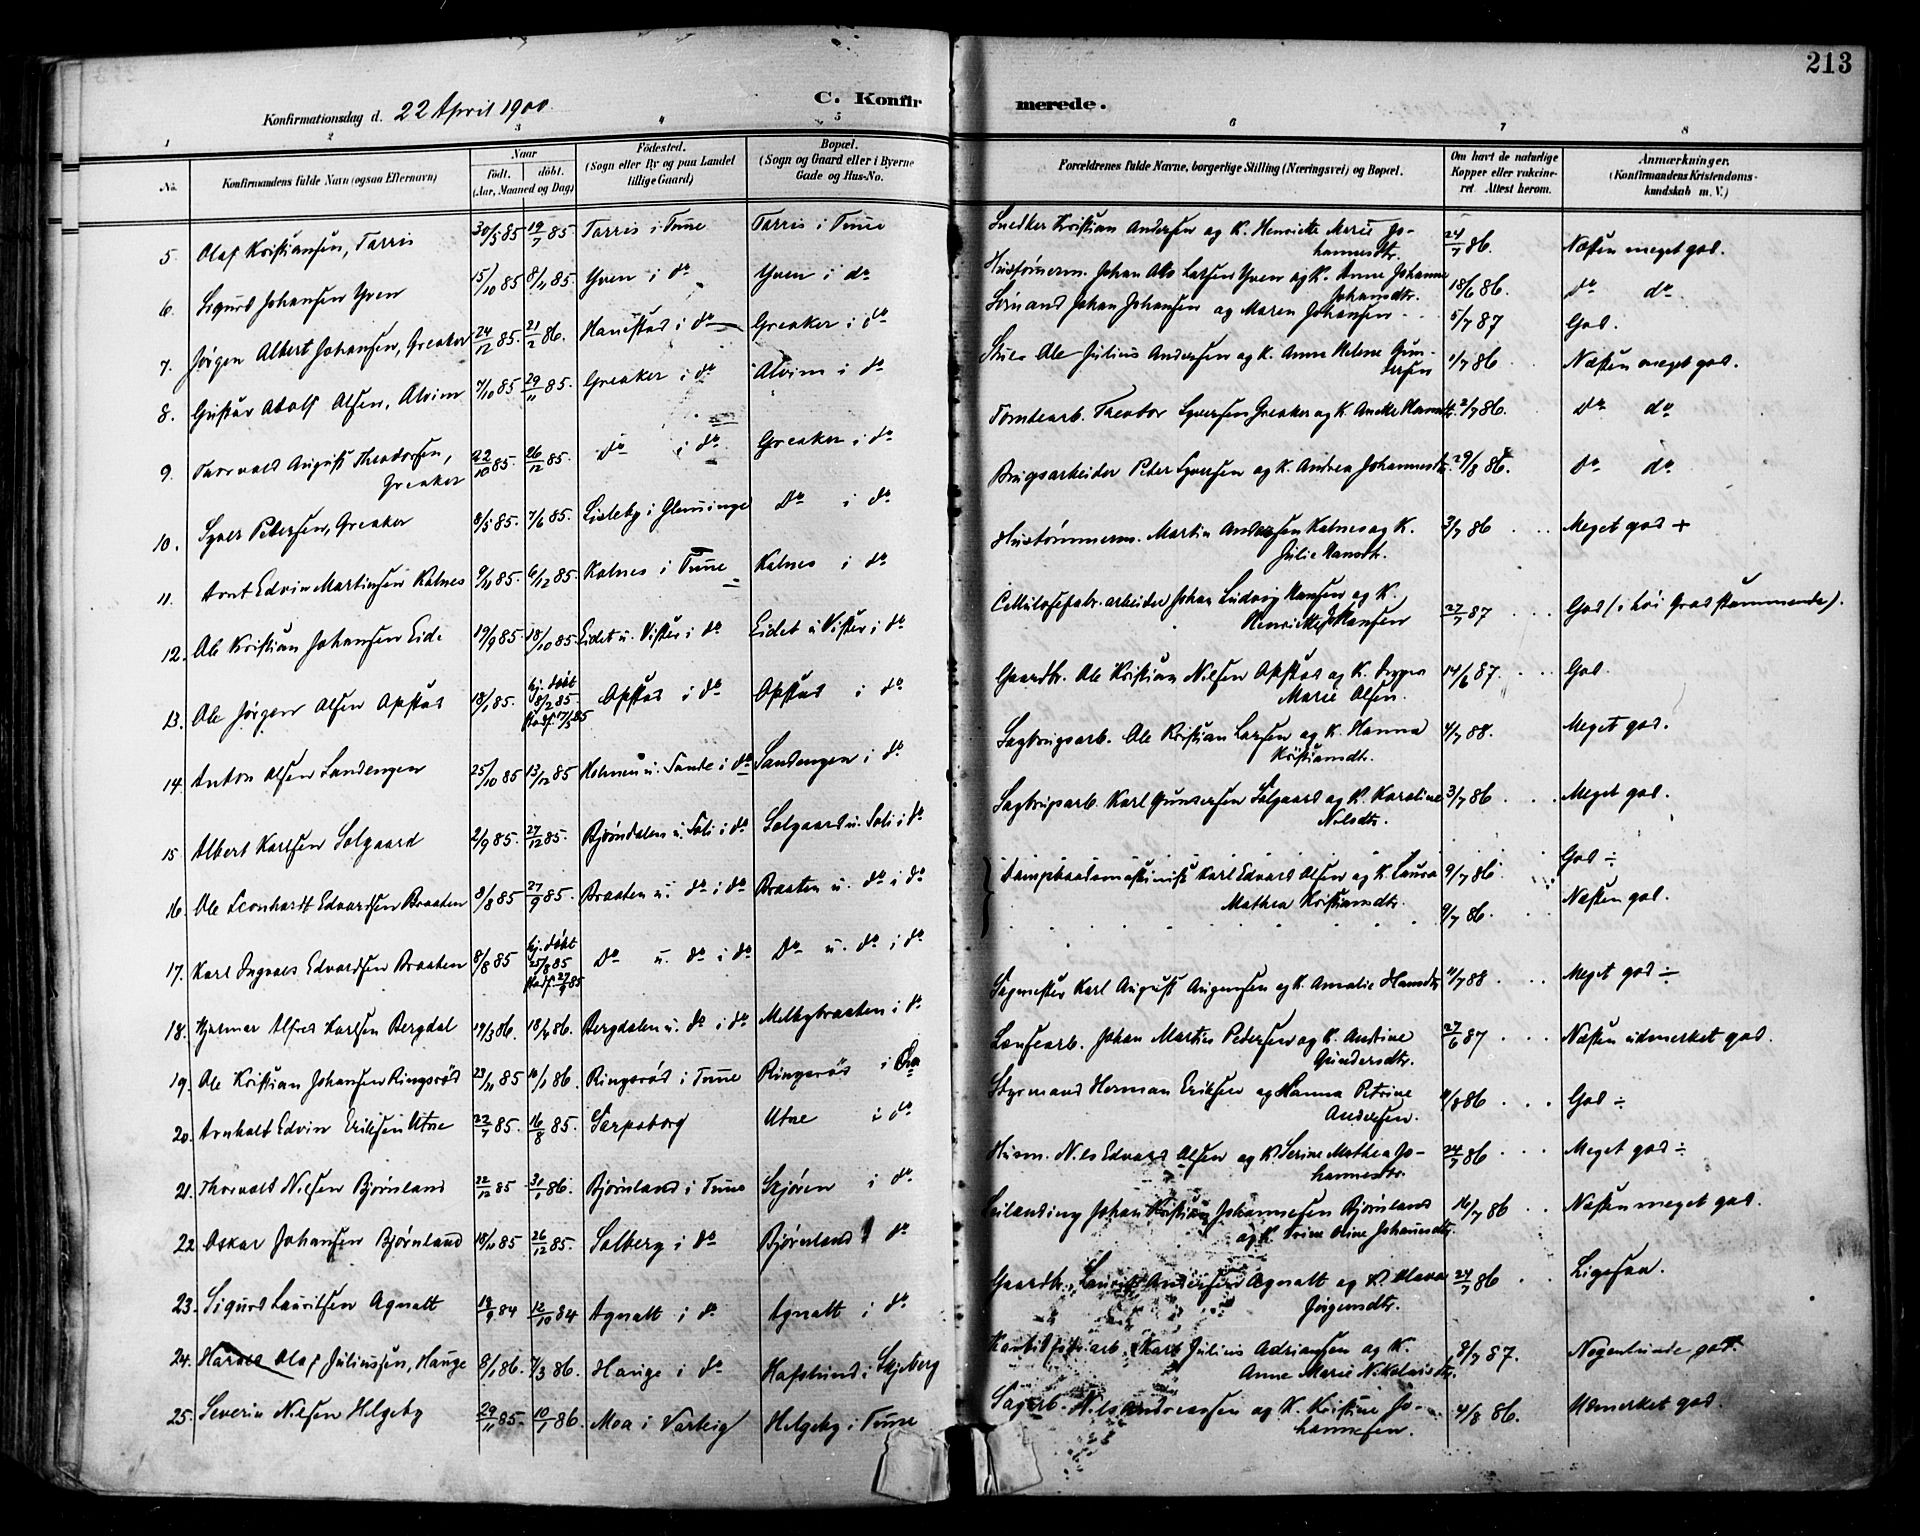 213
Konfirmationsdag d. 22 April 1900.
C. Konfirmerede.
1 2 3 4 5 6 7 8
No. Konfirmandens fulde Navn (ogsaa Efternavn) Naar födt. döbt. (Aar, Maaned og Dag) Födested. (Sogn eller By og paa Landet tillige Gaard) Bopæl. (Sogn og Gaard eller i Byerne Gade og Hus-No. Forældrenes fulde Navne, borgerlige Stilling (Næringsvei) og Bopæl. Om havt de naturlige Kopper eller vakcineret Attest herom. Anmærkninger. (Konfirmandens Kristendomskundskab m. V.)
5. Olaf Kristiansen, Tarris 30/5 85 19/7 85 Tarris i Tune Tarris i Tune Snedker Kristian Andersen og K. Henriette Marie Johannesdtr. 24/7 86. Næsten meget god.
6. Sigurd Johansen Yven 15/10 85 8/11 85. Yven i do Yven i do Hustømerm. Johan Larsen Yven og K. Anne Johanne Johansdtr. 18/6 86. do do
7. Jörgen Albert Johansen, Greaker 24/12 85. 21/2 86. Hanestad i do Greaker i do Johan Johansen og Maren Johansen 5/7 87 God.
8. Gustav Adolf Olsen, Alvim 7/10 85 29/11 85. Greaker i do Alvim i do Ole Julius Andersen og K. Anne Helene Gundersen 1/7 86 Næsten meget god.
9. Thorvald August Theodorsen, Greaker 22/10 85. 26/12 85. do i do Greaker i do Tomtearb. Theodor Syversen Greaker og K. 2/7 86. do do
10. Syver Petersen, Greaker 8/5 85. 7/6 85. Lisleby i Glemminge Do i do Brugsarbeider Peter Syversen og K. Andrea Johannesdtr. 29/8 86. do do
11. Arnt Edvin Martinsen Kalnes 9/11 85. 6/12 85. Kalnes i Tune Kalnes i do Hustømmerm. Martin Andersen Kalnes og K. Julie Hansdtr. 3/7 86 Meget god +
12. Ole Kristian Johansen Eide 19/9 85. 18/10 85. Eidet u. Vister i do Eidet u Vister i do Cellulosefabr. arbeider Johan Ludvig Hansen og K. Henriette Hansen 27/7 87 God (i høi Grad stammende).
13. Ole Jörgen Olsen Opstad 18/1 85. hj. døbt 8/2 85. stadf. 17/5 85 Opstad i do Opstad i do Gaardbr. Ole Kristian Nilsen Opstad og K. Inger Marie Olsen. 14/6 87. God.
14. Anton Olsen Sandengen 25/10 85 13/12 85 Holmen u. Tande i do Sandengen i do Sagbrugsarb. Ole Kristian Larsen og K. Hanna Kristiansdtr. 4/7 88. Meget god.
15. Albert Karlsen Solgaard 2/9 85. 27/12 85. Bjørndalen u. Soli i do Solgaard u. Soli i do Sagbrugsarb. Karl Gundersen Solgaard og K. Karoline Nilsdtr. 3/7 86 Meget god.
16. Ole Leonhardt Edvardsen Braaten 8/8 85 27/9 85. Braaten u. do i do Braaten u. do i do Dampbaadsmaskinist Karl Edvard Olsen og K. Laura Mathea Kristiansdtr. 9/7 86 God ÷
17. Karl Ingvald Edvardsen Braaten 8/8 85 hj. døbt 25/8 85 stadf. 27/9 85 Do u. do i do Do u. do i do 9/7 86. Næsten god.
18. Hjalmar Alfred Karlsen Bergdal 19/3 86. 18/4 86. Bergdalen u. do i do Melbybraaten i do Sagmester Karl August Augensen og K. Amalie Hansdtr. 11/7 88 Meget god ÷
19. Ole Kristian Johansen Ringsrød 23/11 85 10/1 86. Ringsrød i Tune Ringsrød i do Johan Martin Pedersen og K. Andrine Gundersdtr. 27/6 87 Næsten udmerket god.
20. Arnholt Edvin Eriksen Utne 22/7 85. 16/8 85. Sarpsborg Utne i do Styrmand Herman Eriksen og Hanna Petrine Andersen. 11/8 86 God ÷
21. Thorvald Nilsen Bjørnland 22/12 85 31/1 86. Bjørnland i Tune Skjøren i do Husm. Nils Edvard Olsen og K. Serine Mathea Johannesdtr. 24/7 86 Meget god ÷
22 Oskar Johansen Bjørnland 18/11 85 26/12 85. Solberg i do Bjørnland i do Leilænding Johan Kristian Johannesen Bjørnland og K. Trine Oline Johannesdtr. 16/7 86 Næsten meget god.
23. Sigurd Lauritsen Agnalt 19/9 84 12/10 84 Agnalt i do Agnalt i do Gaardb. Laurits Andersen Agnalt og K. Maren Jörgensdtr. 24/7 86 Ligesaa.
24. Harald Olaf Juliussen, Hauge 8/1 86. 7/3 86. Hauge i do Hafslund i Skjeberg Karl Julius Adriansen og K. Anne Marie Nikolaisdtr. 8/7 87. Nogenlunde god.
25. Severin Nilsen Helgeby 29/11 85. 10/1 86. Moa i Varteig Helgeby i Tune Sagarb. Nils Andreassen og K. Kristine Johannesen. 4/8 86. Udmerket god.